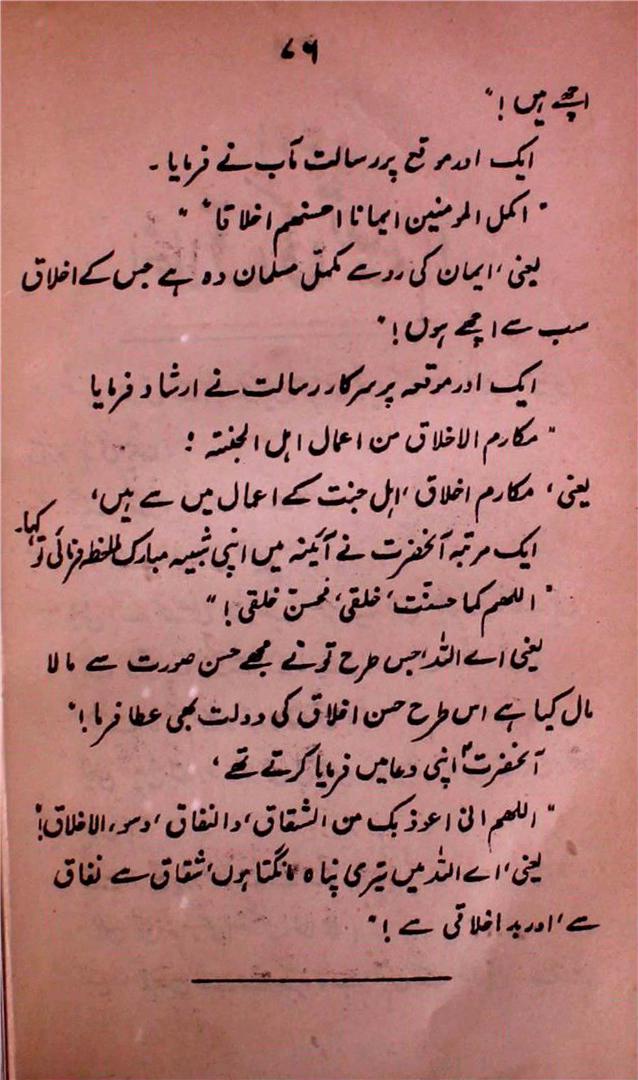 ۷۶
اچھے ہیں!"
ایک اور موقع پر رسالت مآب نے فرمایا۔
"اکمل المومنین ایمانا احسنھم اخلاقا"
یعنی، ایمان کی رو سے مکمل مسلمان وہ ہے جس کے اخلاق
سب سے اچھے ہوں!"
ایک اور موقعہ پر سرکار رسالت نے ارشاد فرمایا
"مکارم الاخلاق من اعمال اہل الجنتہ!
یعنی، مکارم اخلاق، اہل جنت کے اعمال میں سے ہیں،
ایک مرتبہ آنحضرت نے آئینہ میں اپنی شبیہ مبارک ملاحظہ فرمائی تو، کہا۔
"اللھم کما حسنت، خلقی، فحسن خلقی!"
یعنی اے اللہ، جس طرح تو نے مجھے حسن صورت سے مالا
مال کیا ہے اس طرح حسن اخلاق کی دولت بھی عطا فرما!"
آنحضرتؐ اپنی دعا میں فرمایا کرتے تھے،
"اللھم انی اعوذ بک من الشقاق، والنفاق، وسوء الاخلاق!"
یعنی، اے اللہ میں تیری پناہ مانگتا ہوں، شقاق سے نفاق
سے، اور بد اخلاقی سے!"